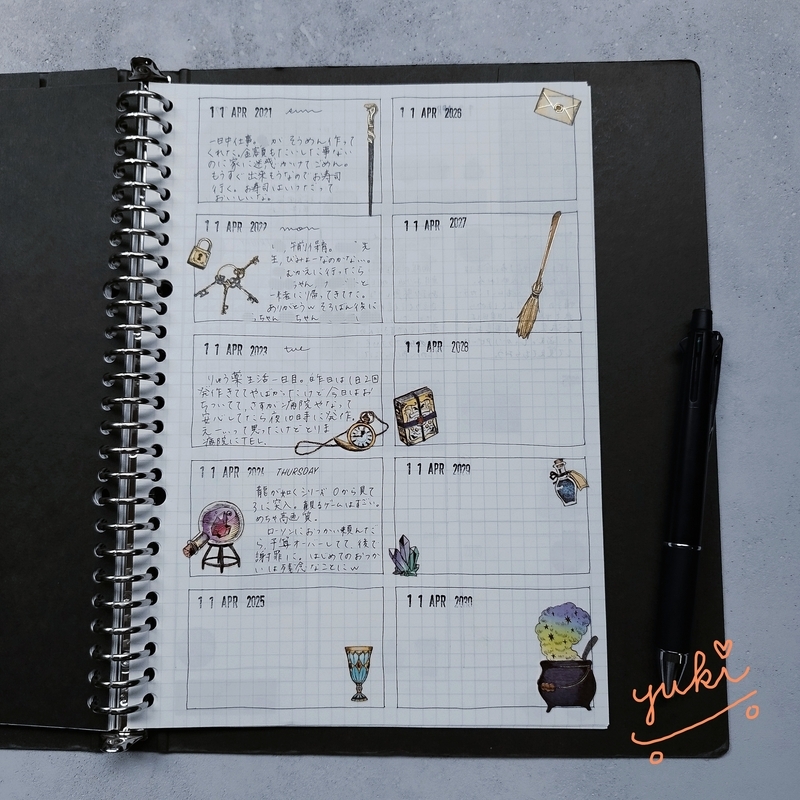 11 APR 2021 sun
一日中仕事。 か そうめん作って
くれた。金高員もたいした事ない
のに家に迷惑かけてごめん。
もうすぐ出来そうなのでお寿司
行く。お寿司はいつだって
おいしいな。
11 APR 2022 mon
午前保育。 先
生、ひみょーなのかない。
おかえに行ったら
ちゃん と
一緒に帰ってきてた。
ありがとうw そろばん後に
ちゃん ちゃん
11 APR 2023 tue
りゅう薬生活一日目。昨日は1日2回
発作きててやばかったけど今日はお
ちついてて、さすが病院やなって
安心してたら夜10時半に発作。
えーいって思ったけどとりま
病院にTEL.
11 APR 2024 THURSDAY
龍が如くシリーズ 0から見て
3に突入。観るゲームはすごい。
めちゃ高画質。
ローソンにおつかい頼んだ
ら予算オーバーしてて、後で
謝罪に。はじめてのおつか
いは残念なことにw
11 APR 2025
11 APR 2026
11 APR 2027
11 APR 2028
11 APR 2029
11 APR 2030
yuki